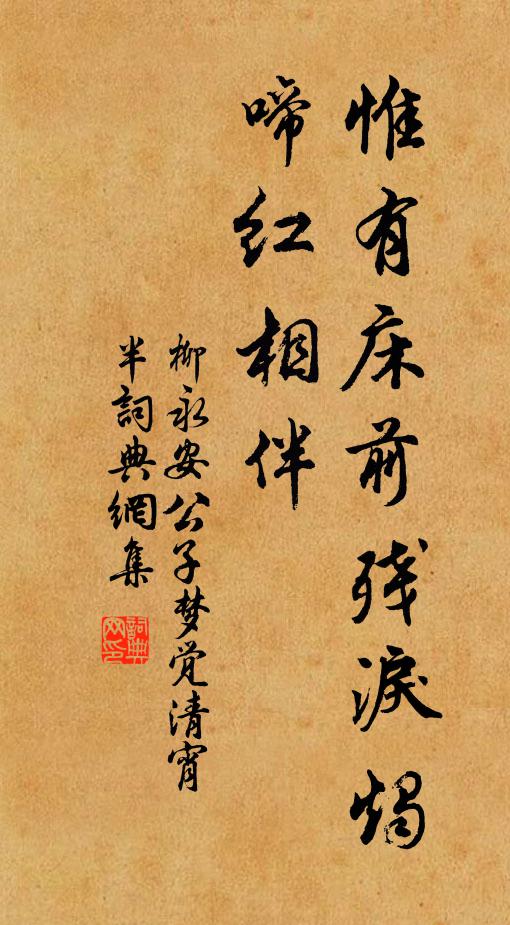 惟有床前残淚烛
啼红相伴
柳永安公子梦觉清宵
半詞典網集
詞典网印